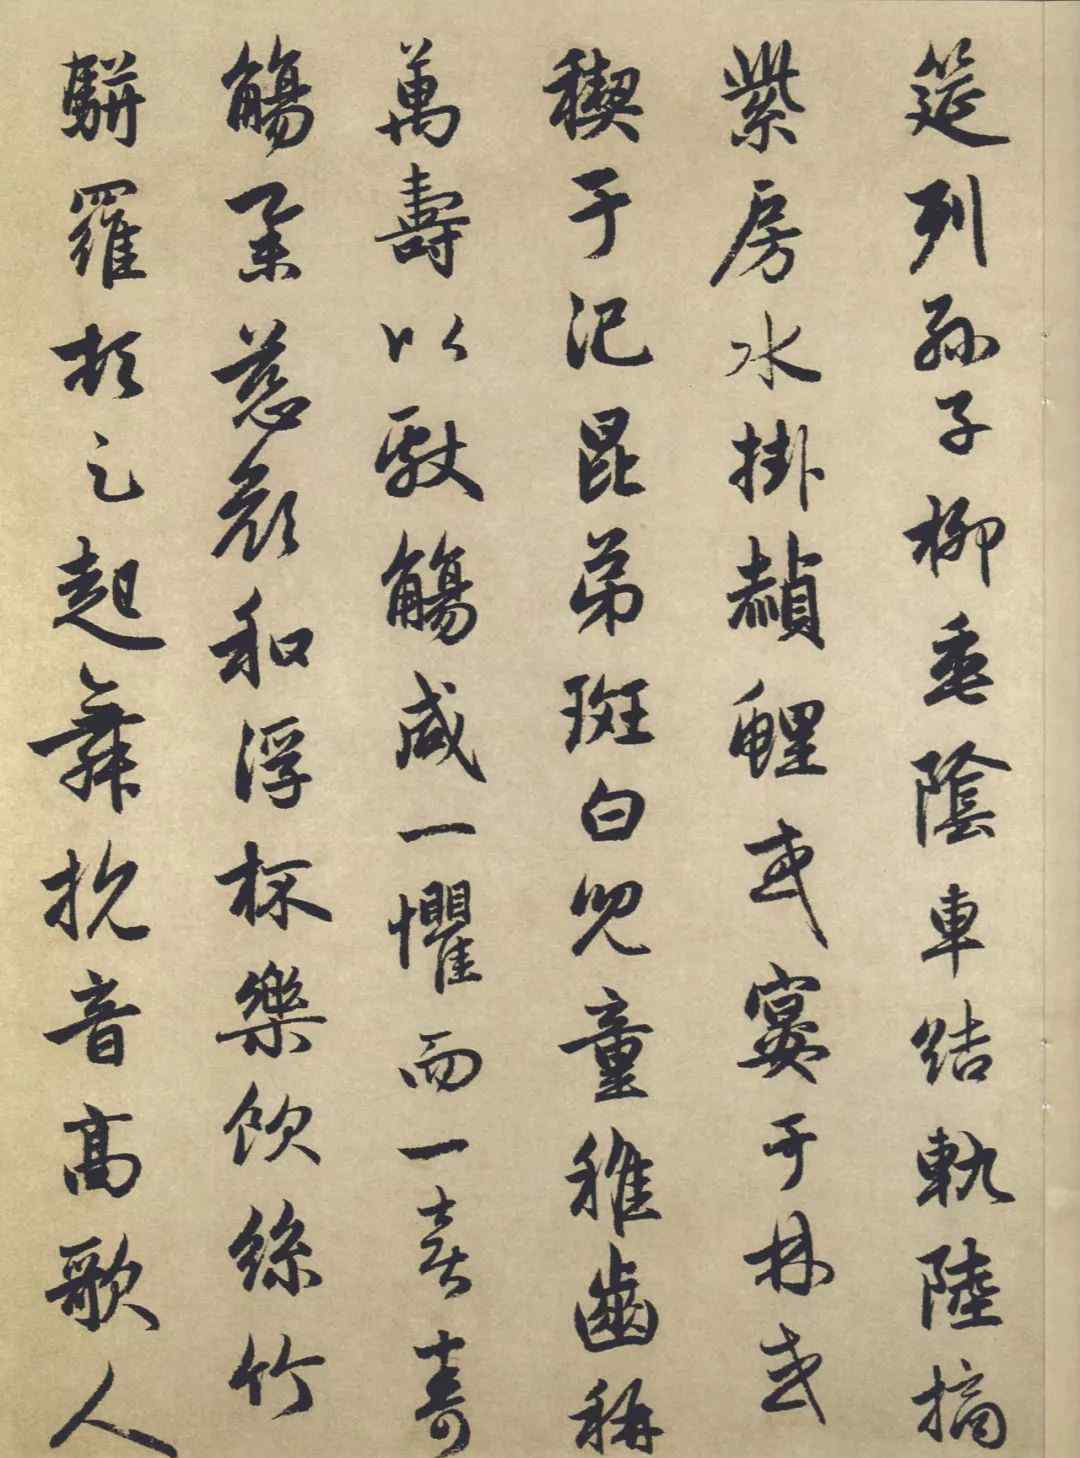 筵列孫子柳垂陰車結軌陸摘
紫房水掛赬鯉或宴于林或
禊于汜昆弟斑白兒童稚齒稱
萬壽以獻觴咸一懼而一喜壽
觴舉慈顏和浮杯樂飲絲竹
駢羅頓足起舞抗音高歌人